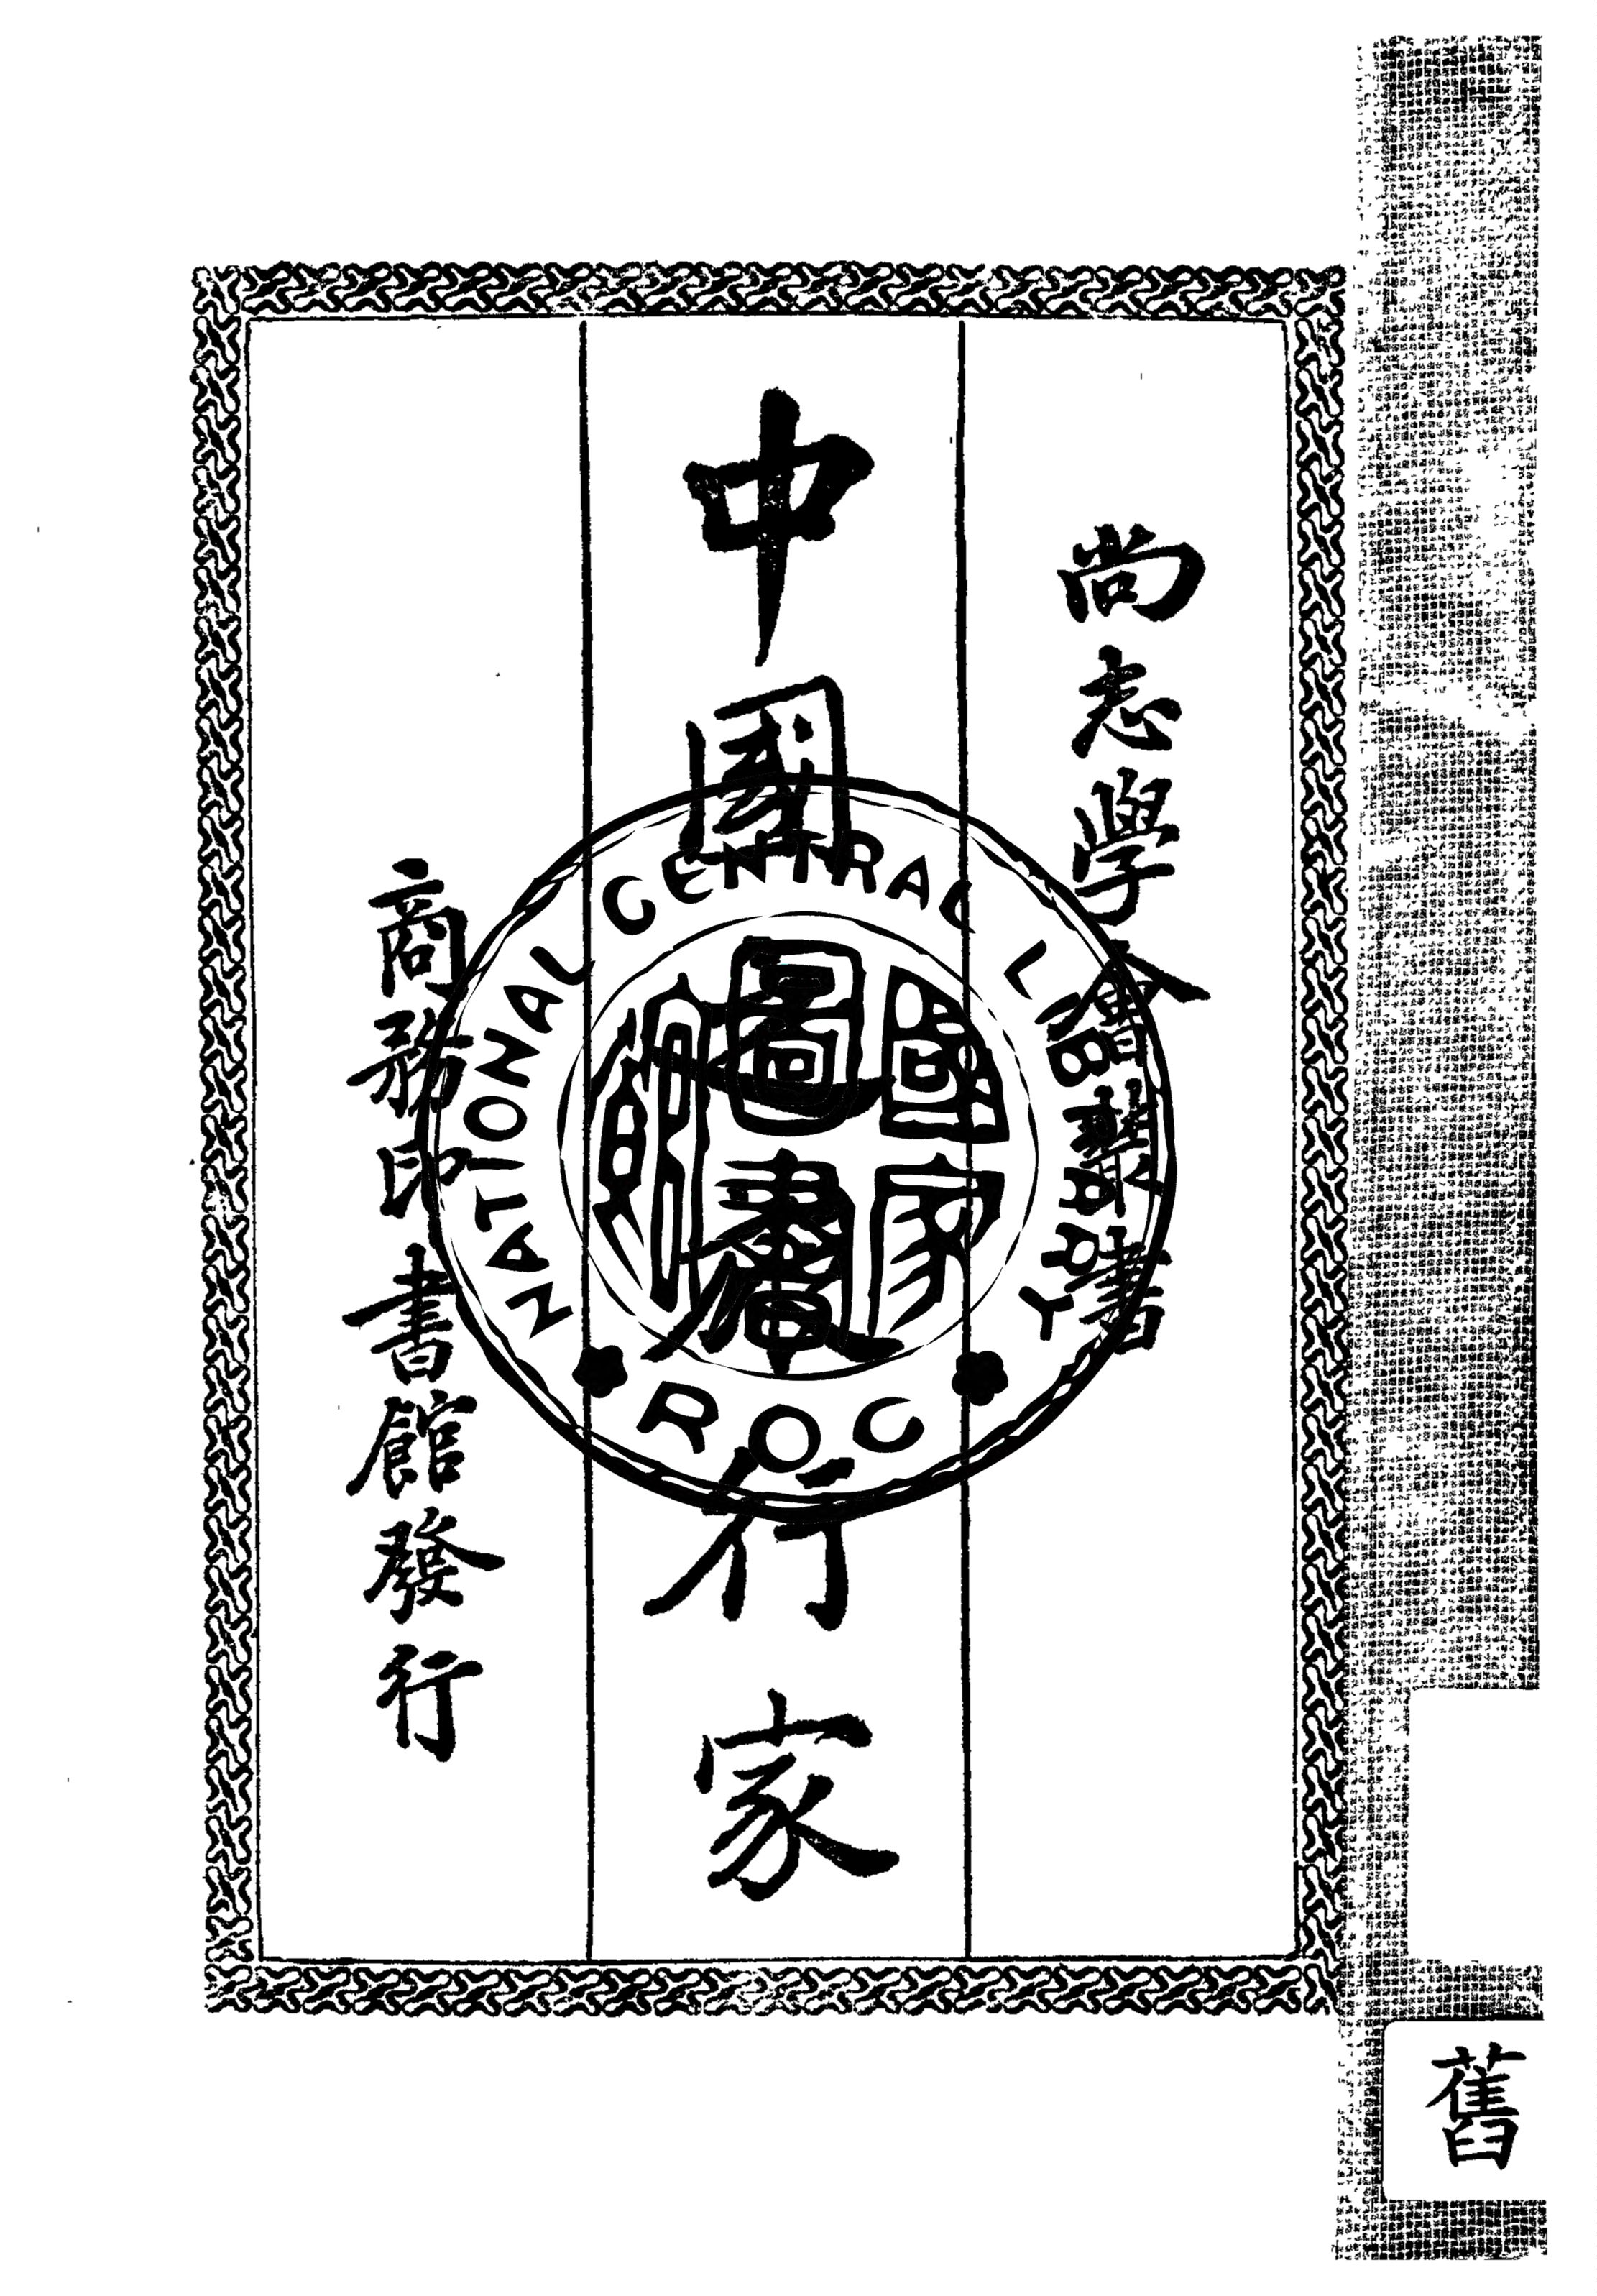 尚志學會叢書
中國之旅行家
商務印書館發行
NATIONAL CENTRAL LIBRARY
ROC
國家
圖書
館
舊